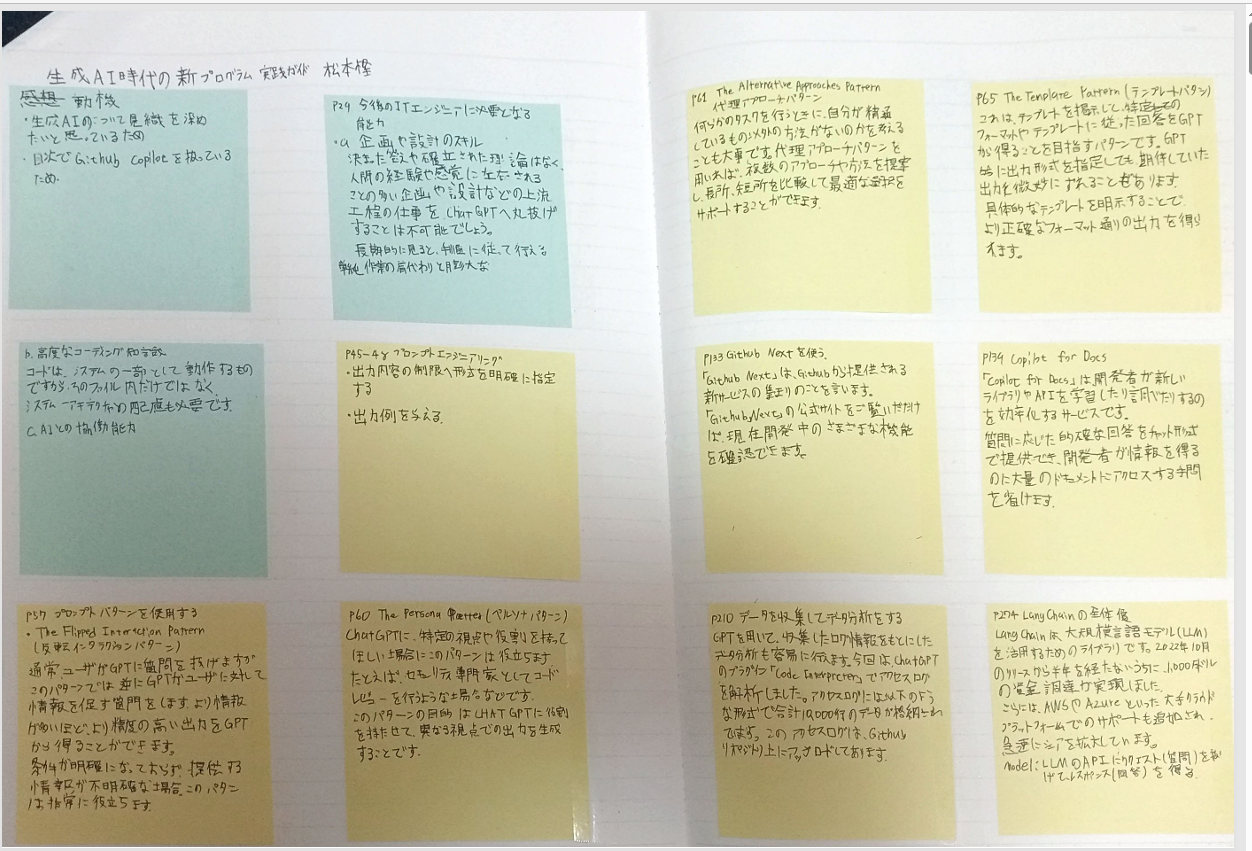 生成AI時代の新プログラム実践ガイド 松本慳
感想 動機
・生成AIのについて見織を深め
たいと思っているため
・目次でGithub Copilotを扱っている
ため.
P29 今後のITエンジニアに必要となる
能力
・a. 企画や設計のスキル
決まった答えや確立された理論はなく、
人間の経験や感覚に左右される
ことの多い企画や設計などの上流
工程の仕事をChatGPTへ丸投げ
することは不可能でしょう。
長期的に見ると、手順に従って行える
単純作業の肩代わりと膨大な
b. 高度なコーディング知識
コードは、システムの一部として動作するもの
ですから、そのファイル内だけではなく、
システムアーキテクチャの配慮も必要です.
C. AIとの協働能力
P45-48 プロンプトエンジニアリング
・出力内容の制限や形式を明確に指定
する
・出力例を与える.
P57 プロンプトパターンを使用する
・The Flipped Interaction Pattern
(反転インタラクションパターン)
通常ユーザがGPTに質問を投げますが
このパターンでは逆にGPTがユーザに対して
情報を促す質問をします より情報
が多いほど、より精度の高い出力をGPT
から得ることができます.
条件が明確になっておらず、提供する
情報が不明確な場合、このパターン
は非常に役立ちます.
P60 The Persona Pattern (ペルソナパターン)
ChatGPTに、特定の視点や役割を持って
ほしい場合にこのパターンは役立ちます
たとえば、セキュリティ専門家としてコード
レビューを行うような場合などです.
このパターンの目的はCHAT GPTに役割
を持たせて、異なる視点での出力を生成
することです.
P61 The Alternative Approaches Pattern
代理アプローチパターン
何らかのタスクを行うときに、自分が精通
しているもの以外の方法がないのかを考える
ことも大事です。代理アプローチパターンを
用いれば、複数のアプローチや方法を提案
し、長所、短所を比較して最適な選択を
サポートすることができます.
P65 The Template Pattern (テンプレートパタン)
これは、テンプレートを掲示して、特定の
フォーマットやテンプレートに従った回答をGPT
から得ることを目指すパターンです。GPT
に出力形式を指定しても期待していた
出力と微妙にずれることもあります.
具体的なテンプレートを明示することで
より正確なフォーマット通りの出力を得ら
れます。
P133 Github Nextを使う.
「Github Next」は、Githubから提供される
新サービスの集まりのことを言います.
「Github Next」の公式サイトをご覧いただけ
ば、現在開発中のさまざまな機能
を確認できます。
P134 Copilot for Docs
「Copilot for Docs」は開発者が新しい
ライブラリやAPIを学習したり調べたりするの
を効率化するサービスです。
質問に応じた的確な回答をチャット形式
で提供でき、開発者が情報を得る
のに大量のドキュメントにアクセスする手間
を省けます.
P210 データを収集してデータ分析をする
GPTを用いて、収集したログ情報をもとにした
データ分析も容易に行えます。今回は、ChatGPT
のプラグイン「Code Interpreter」でアクセスログ
を解析しました。アクセスログには以下のよう
な形式で合計10,000行のデータが格納され
てます。このアクセスログは、Github
リポジトリ上にアップロードしてあります.
P274 LangChainの全体像
LangChainは、大規模言語モデル(LLM)
を活用するためのライブラリです。2022年10月
のリリースから半年を経たないうちに、1,000万ドル
の資金調達が実現しました.
さらには、AWSやAzureといった大手クラウド
プラットフォームでのサポートも追加され、
急速にシェアを拡大しています。
Model: LLMのAPIにリクエスト(質問)を投
げて、レスポンス(回答)を得る